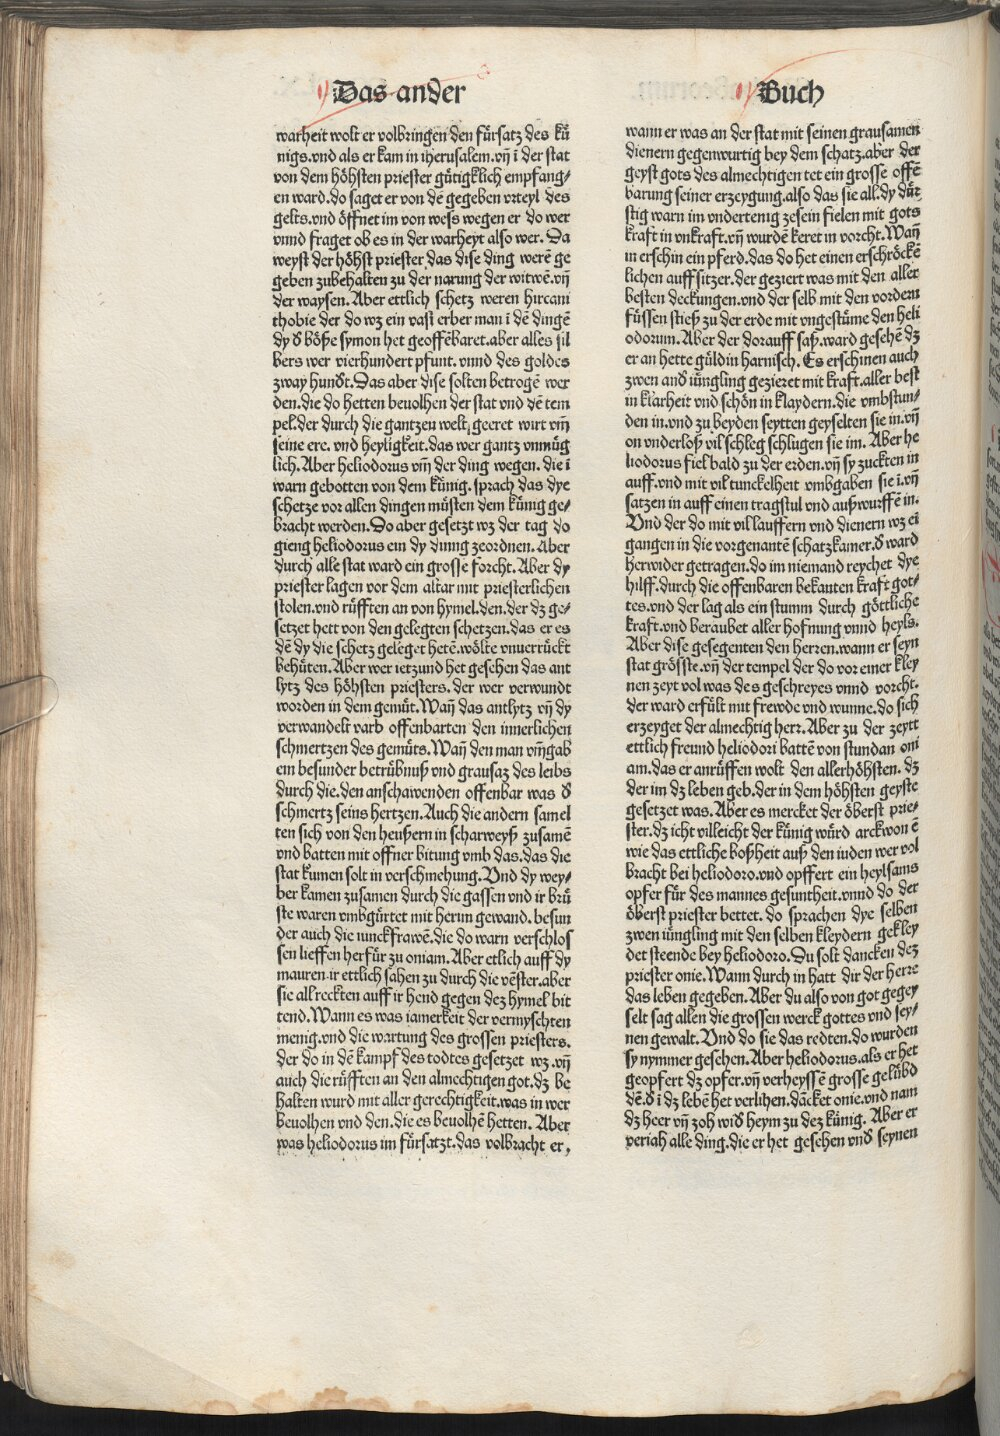 Das ander
Buch
warheit wolt er volbringen den fürsatz des kü
nigs.vnd als er kam in iherusalem.vn̄ ī der stat
von dem höhsten priester gütigklich empfang⸗
en ward.do saget er von dē gegeben vrteyl des
gelts.vnd öffnet im von wess wegen er do wer
vnnd fraget ob es in der warheyt also wer. Da
weyst der höhst priester das dise ding werē ge
geben zubehalten zu der narung der witwē.vn̄
der waysen. Aber ettlich schetz weren hircani
thobie der do wz ein vast erber man ī dē dingē
dy d̄ böße symon het geoffēbaret.aber alles sil
bers wer vierhundert pfunt. vnnd des goldes
zway hund̄t.Das aber dise solten betrogē wer
den.die do hetten beuolhen der stat vnd dē tem
pel.der durch die gantzen welt geeret wirt vm̄
seine ere. vnd heyligkeit.das wer gantz vnmüg
lich. Aber heliodorus vm̄ der ding wegen. die ī
warn gebotten von dem künig. sprach das dye
schetze vor allen dingen müsten dem künig ge⸗
bracht werden. So aber gesetzt wz der tag do
gieng heliodorus ein dy ding zeordnen. Aber
durch alle stat ward ein grosse forcht. Aber dy
priester lagen vor dem altar mit priesterlichen
stolen.vnd rüfften an von hymel.den.der dz ge⸗
setzet hett von den gelegten schetzen.das er es
dē dy die schetz geleget hetē.wölte vnuerrückt
behüten. Aber wer ietzund het gesehen das ant
lytz des höhsten priesters. der wer verwundt
worden in dem gemüt. Wan̄ das antlytz vn̄ dy
verwandelt varb offenbarten den innerlichen
schmertzen des gemüts. Wan̄ den man vm̄gab
ein besunder betrübnuß vnd grausaz des leibs
durch die.den anschawenden offenbar was d̄
schmertz seins hertzen. Auch die andern samel
ten sich von den heußern in scharweyß zusamē
vnd batten mit offner bitung vmb das.das die
stat kumen solt in verschmehung. Vnd dy wey⸗
ber kamen zusamen durch die gassen vnd ir brü
ste waren vmbgürtet mit herun gewand. besun
der auch die iunckfrawē.die do warn verschlos
sen lieffen herfür zu oniam. Aber etlich auff dy
mauren ir ettlich sahen zu durch die vēster.aber
sie all reckten auff ir hend gegen dez hymel bit
tend. Wann es was iamerkeit der vermyschten
menig.vnd die wartung des grossen priesters.
der do in dē kampf des todtes gesetzet wz.vn̄
auch die rüfften an den almechtigen got.dz be
halten wurd mit aller gerechtigkeit.was in wer
beuolhen vnd den.die es beuolhē hetten. Aber
was heliodorus im fürsatzt.das volbracht er,
wann er was an der stat mit seinen grausamen
dienern gegenwurtig bey dem schatz.aber der
geyst gots des almechtigen tet ein grosse offē
barung seiner erzeygung.also das sie all.dy dür
stig warn im vndertenig zesein fielen mit gots
kraft in vnkraft.vn̄ wurdē keret in vorcht. Wan̄
in erschin ein pferd.das do het einen erschröckē
lichen auffsitzer.der geziert was mit den aller
besten deckungen.vnd der selb mit den vordern
füssen stieß zu der erde mit vngestüme den heli
odorum. Aber der dorauff saß.ward gesehē dz
er an hette güldin harnisch. Es erschinen auch
zwen and̄ iüngling gezieret mit kraft.aller best
in klarheit vnd schön in klaydern.die vmbstun⸗
den in.vnd zu beyden seytten geyselten sie in.vn̄
on vnderloß vil schleg schlugen sie im. Aber he
liodorus fiel bald zu der erden.vn̄ sy zuckten in
auff.vnd mit vil tunckelheit vmbgaben sie ī.vn̄
satzen in auff einen tragstul vnd außwurffē in.
Vnd der do mit vil lauffern vnd dienern wz ei
gangen in die vorgenantē schatzkamer.d̄ ward
herwider getragen.do im niemand reychet dye
hilff.durch die offenbaren bekanten kraft got⸗
tes.vnd der lag als ein stumm durch göttliche
kraft.vnd beraubet aller hofnung vnnd heyls.
Aber dise gesegenten den herren.wann er seyn
stat grösste.vn̄ der tempel der do vor einer kley
nen zeyt vol was des geschreyes vnnd vorcht.
der ward erfült mit frewde vnd wunne.do sich
erzeyget der almechtig herr. Aber zu der zeytt
ettlich freund heliodori battē von stundan oni
am.das er anrüffen wolt den allerhöhsten. dz
der im dz leben geb.der in dem höhsten geyste
gesetzet was. Aber es mercket der öberst prie⸗
ster.dz icht villeicht der künig würd arckwon ē
wie das ettliche boßheit auß den iuden wer vol
bracht bei heliodoro.vnd opffert ein heylsams
opfer für des mannes gesuntheit.vnnd do der
öberst priester bettet. do sprachen dye selben
zwen iüngling mit den selben kleydern gekley
det steende bey heliodoro. Du solt dancken dez
priester onie. Wann durch in hatt dir der herre
das leben gegeben. Aber du also von got gegey
selt sag allen die grossen werck gottes vnd sey⸗
nen gewalt. Vnd do sie das redten.do wurden
sy nymmer gesehen. Aber heliodorus.als er het
geopfert dz opfer.vn̄ verheyssē grosse gelübd
dē.d̄ ī dz lebē het verlihen.dācket onie.vnd nam
dz heer vn̄ zoh wid̄ heym zu dez künig. Aber er
veriah alle ding.die er het gesehen vnd̄ seynen